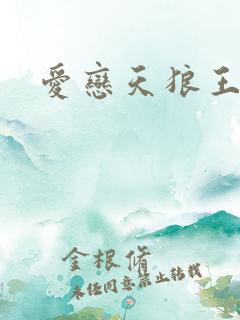 愛戀天狼王
金根脩
未经同意禁止转载